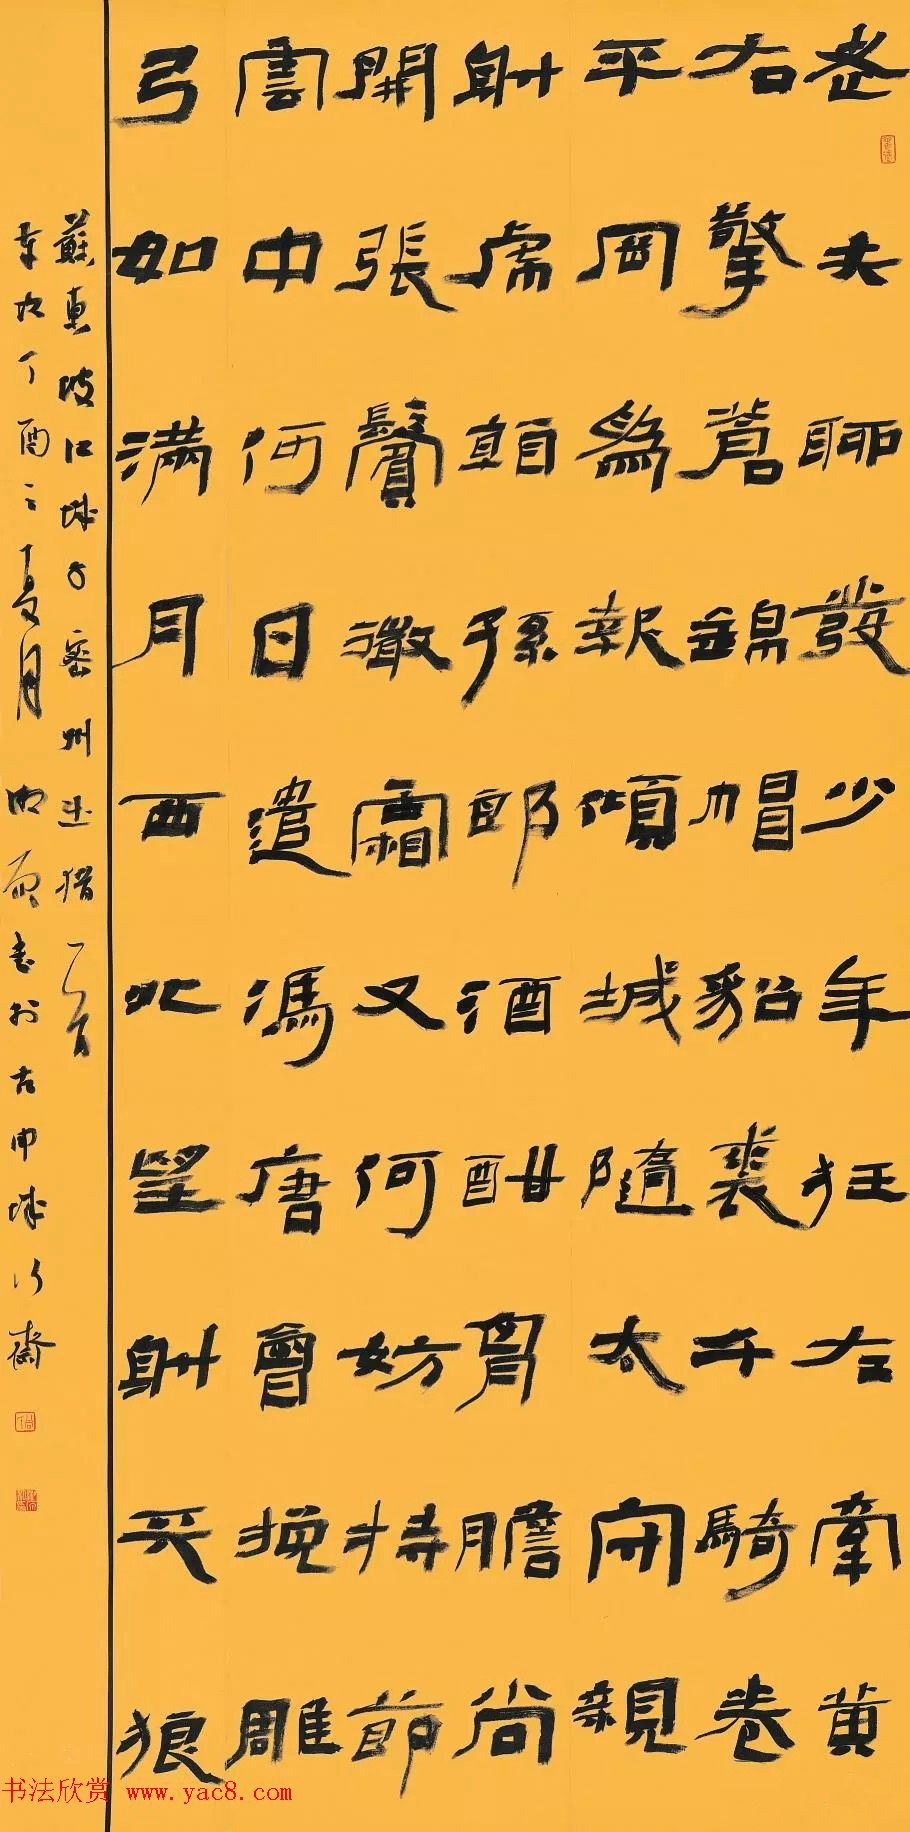 老夫聊發少年狂左牽黃
右擎蒼錦帽貂裘千騎卷
平岡爲報傾城隨太守親
射虎看孫郎酒酣胷膽尚
開張鬢微霜又何妨持節
雲中何日遣馮唐會挽雕
弓如滿月西北望射天狼
蘇東坡江城子密州出猎一首
歲次丁酉之夏月書於古申城
书法欣赏 www.yac8.com